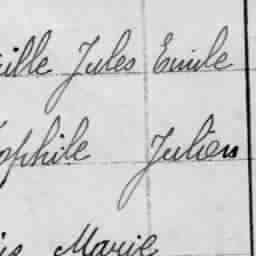 ille Jules Emile
ophile Julien
is Marie